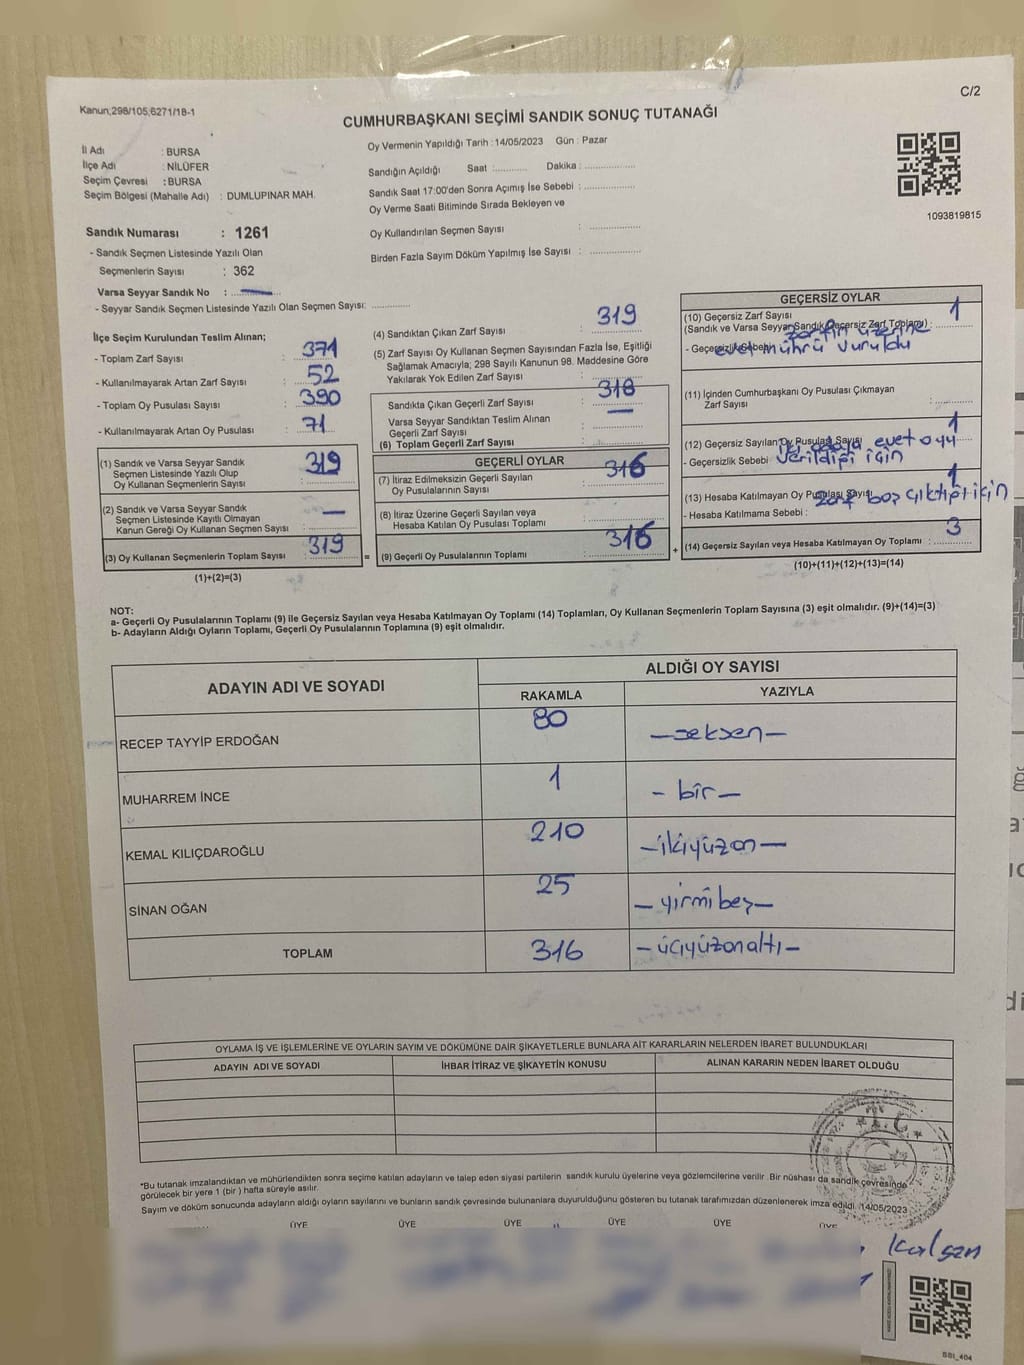 Kanun;298/105;6271/18-1
C/2
CUMHURBAŞKANI SEÇİMİ SANDIK SONUÇ TUTANAĞI
İl Adı : BURSA
İlçe Adı : NİLÜFER
Seçim Çevresi : BURSA
Seçim Bölgesi (Mahalle Adı) : DUMLUPINAR MAH.
Oy Vermenin Yapıldığı Tarih : 14/05/2023 Gün : Pazar
Sandığın Açıldığı Saat : ............ Dakika : ................
Sandık Saat 17:00'den Sonra Açımış İse Sebebi : ................
Oy Verme Saati Bitiminde Sırada Bekleyen ve
Oy Kullandırılan Seçmen Sayısı : ................
Birden Fazla Sayım Döküm Yapılmış İse Sayısı : ................
1093819815
Sandık Numarası : 1261
- Sandık Seçmen Listesinde Yazılı Olan
Seçmenlerin Sayısı : 362
Varsa Seyyar Sandık No : —
- Seyyar Sandık Seçmen Listesinde Yazılı Olan Seçmen Sayısı: ............
İlçe Seçim Kurulundan Teslim Alınan;
- Toplam Zarf Sayısı : 371
- Kullanılmayarak Artan Zarf Sayısı : 52
- Toplam Oy Pusulası Sayısı : 390
- Kullanılmayarak Artan Oy Pusulası : 71
(1) Sandık ve Varsa Seyyar Sandık
Seçmen Listesinde Yazılı Olup
Oy Kullanan Seçmenlerin Sayısı : 319
(2) Sandık ve Varsa Seyyar Sandık
Seçmen Listesinde Kayıtlı Olmayan
Kanun Gereği Oy Kullanan Seçmen Sayısı : —
(3) Oy Kullanan Seçmenlerin Toplam Sayısı : 319
(1)+(2)=(3)
(4) Sandıktan Çıkan Zarf Sayısı : 319
(5) Zarf Sayısı Oy Kullanan Seçmen Sayısından Fazla İse, Eşitliği
Sağlamak Amacıyla; 298 Sayılı Kanunun 98. Maddesine Göre
Yakılarak Yok Edilen Zarf Sayısı : ............
Sandıkta Çıkan Geçerli Zarf Sayısı : 318
Varsa Seyyar Sandıktan Teslim Alınan
Geçerli Zarf Sayısı : —
(6) Toplam Geçerli Zarf Sayısı : ............
=
GEÇERLİ OYLAR
(7) İtiraz Edilmeksizin Geçerli Sayılan
Oy Pusulalarının Sayısı : 316
(8) İtiraz Üzerine Geçerli Sayılan veya
Hesaba Katılan Oy Pusulası Toplamı : ............
(9) Geçerli Oy Pusulalarının Toplamı : 316
+
GEÇERSİZ OYLAR
(10) Geçersiz Zarf Sayısı
(Sandık ve Varsa Seyyar Sandık Geçersiz Zarf Toplamı) : 1
- Geçersizlik Sebebi : zarfın üzerine
evet mührü vuruldu
(11) İçinden Cumhurbaşkanı Oy Pusulası Çıkmayan
Zarf Sayısı : ............
(12) Geçersiz Sayılan Oy Pusulası Sayısı : 1
- Geçersizlik Sebebi iki adaya evet oyu
verildiği için
(13) Hesaba Katılmayan Oy Pusulası Sayısı 1
- Hesaba Katılmama Sebebi : zarf boş çıktığı için
(14) Geçersiz Sayılan veya Hesaba Katılmayan Oy Toplamı : 3
(10)+(11)+(12)+(13)=(14)
NOT:
a- Geçerli Oy Pusulalarının Toplamı (9) ile Geçersiz Sayılan veya Hesaba Katılmayan Oy Toplamı (14) Toplamları, Oy Kullanan Seçmenlerin Toplam Sayısına (3) eşit olmalıdır. (9)+(14)=(3)
b- Adayların Aldığı Oyların Toplamı, Geçerli Oy Pusulalarının Toplamına (9) eşit olmalıdır.
ADAYIN ADI VE SOYADI
ALDIĞI OY SAYISI
RAKAMLA YAZIYLA
RECEP TAYYİP ERDOĞAN 80 —seksen—
MUHARREM İNCE 1 - bir —
KEMAL KILIÇDAROĞLU 210 —ikiyüzon—
SİNAN OĞAN 25 — yirmibeş—
TOPLAM 316 —üçyüzonaltı—
OYLAMA İŞ VE İŞLEMLERİNE VE OYLARIN SAYIM VE DÖKÜMÜNE DAİR ŞİKAYETLERLE BUNLARA AİT KARARLARIN NELERDEN İBARET BULUNDUKLARI
ADAYIN ADI VE SOYADI İHBAR İTİRAZ VE ŞİKAYETİN KONUSU ALINAN KARARIN NEDEN İBARET OLDUĞU
T.C.
*Bu tutanak imzalandıktan ve mühürlendikten sonra seçime katılan adayların ve talep eden siyasi partilerin sandık kurulu üyelerine veya gözlemcilerine verilir. Bir nüshası da sandık çevresinde
görülecek bir yere 1 (bir ) hafta süreyle asılır.
Sayım ve döküm sonucunda adayların aldığı oyların sayılarını ve bunların sandık çevresinde bulunanlara duyurulduğunu gösteren bu tutanak tarafımızdan düzenlenerek imza edildi. 14/05/2023
ÜYE ÜYE ÜYE ÜYE ÜYE ÜYE